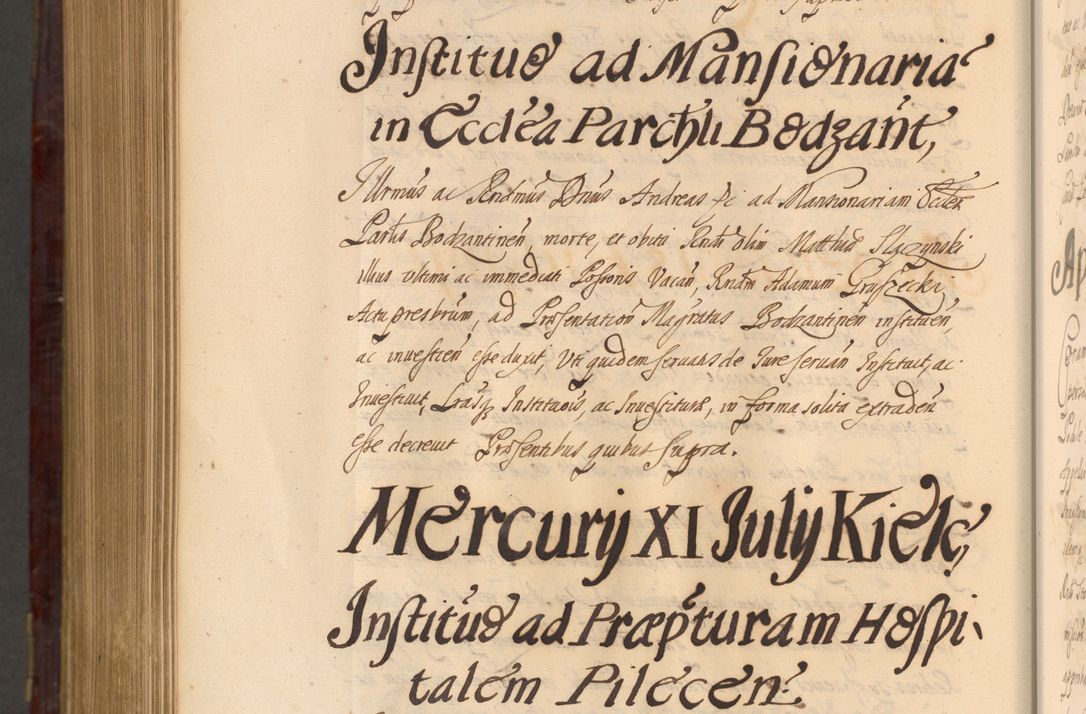 Institũo ad Mansionaria
in Eccĺea Parchli Bodzant,
Illrmus ac Rndmus Dnus Andreas &c ad Mansionariam Eccłæ
Parlis Bodzantinen, morte, et obitu Rndi olim Matthiæ Slazynski
illius ultimi ac immediati Possoris Vacan, Rndm Adamum Gruszecki
Actu presbrum, ad Præsentation Magratus Bodzantinen instituen,
ac investien esse duxit, Uti quidem servatis de Jure servan Instituit, ac
Investivit, Lrasq Institaois, ac Investituræ, in forma solita extraden
esse decrevit Præsentibus quibus supra.
Mercurij XI Julij Kielc,
Institũo ad Præpturam Hospi-
talem Pilecen.